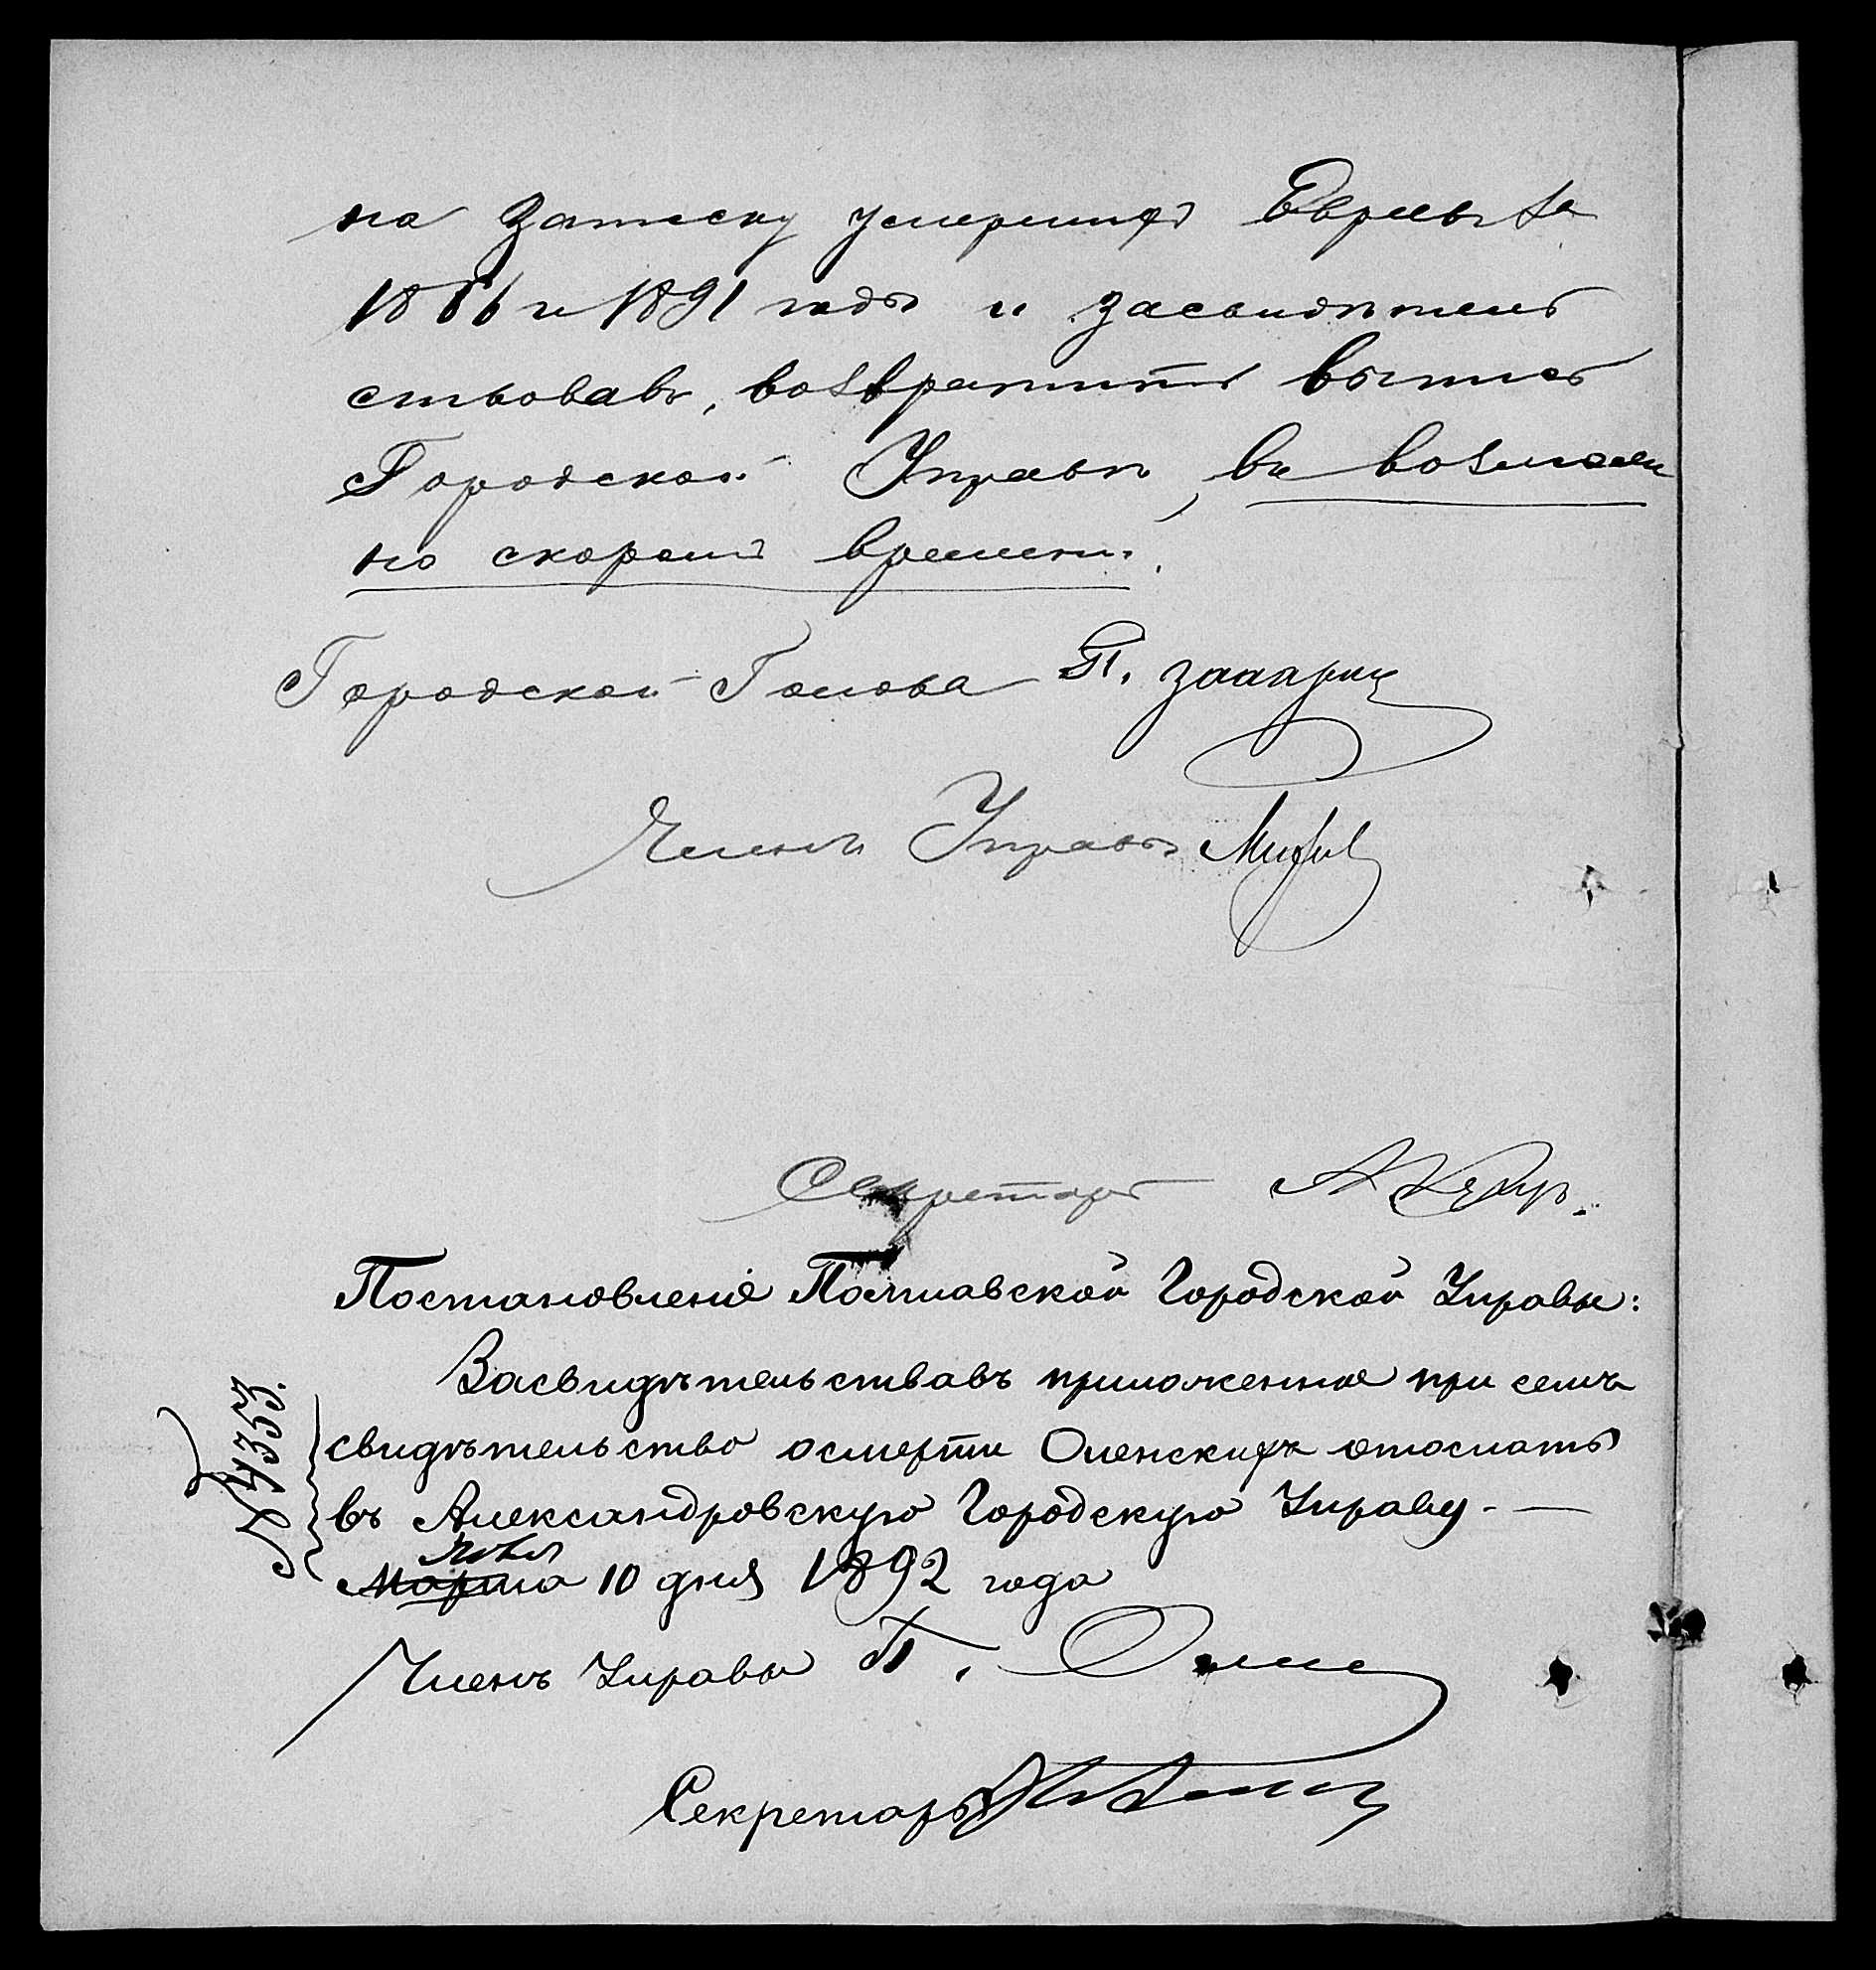 на записку умершихъ Евреевъ за
1886 и 1891 годы и засвидѣтель
ствовавъ, возвратить выпись
Городской Управѣ, въ возможн
но скоромъ времени.
Городской Голова П.
Членъ Управы
Секретарь
Постановленіе Полтавской Городской Управы:
Засвидѣтельствавъ приложенное при семъ
свидѣтельство осмерти Оленскихъ отослать
въ Александровскую Городскую Управу. —
Марта 10 дня 1892 года
№ 4353.
Членъ Управы П.
Секретарь